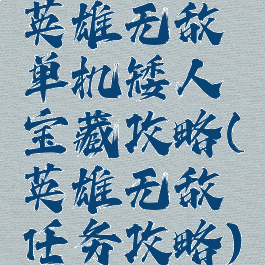 英雄无敌
单机矮人
宝藏攻略(
英雄无敌
任务攻略)